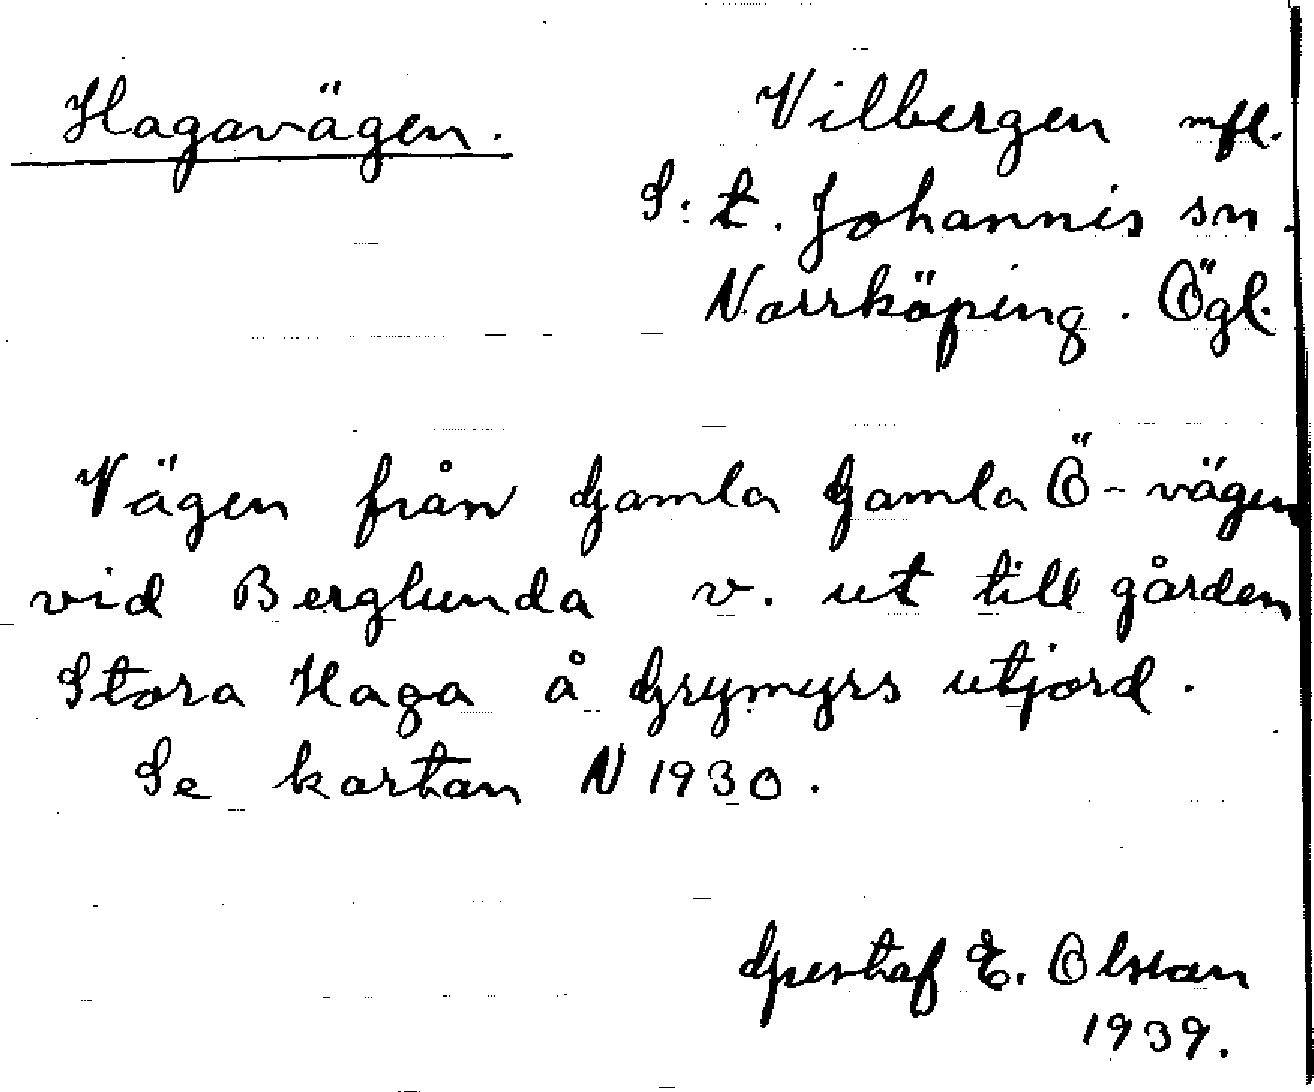 Hagavägen.
Vilbergen mfl.
S:t. Johannis sn.
Norrköping. Ögl.
Vägen från Gamla Gamla Ö-vägen
vid Berglunda v. ut till gården
Stora Haga å Grymyrs utjord.
Se kartan N 1930.
Gustaf E. Olsson
1939.